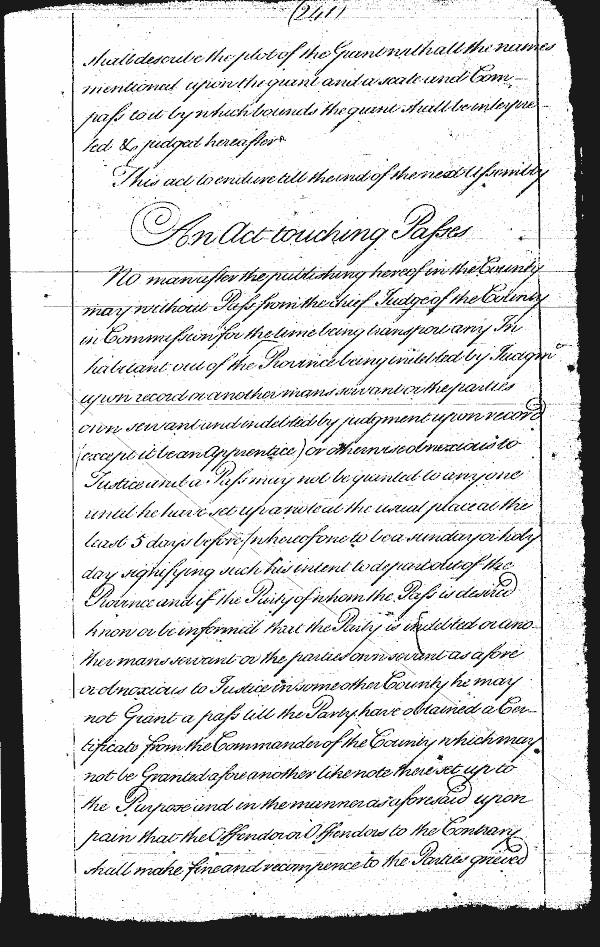 (241)
shall describe the plot of the Grant with all the names
mentioned upon the grant and a scale and Com-
pass to it by which bounds the grant shall be interpre-
ted & judged hereafter
This act to endure till the end of the next Assembly
An Act touching Passes
No man after the publishing hereof in the County
may without Pass from the chief Judge of the County
in Commission for the time being transport any In
habitant out of the Province being indebted by Judgmt
upon record or another mans servant or the parties
own servant and indebted by judgment upon record
(except it be an apprentice) or otherwise obnoxious to
Justice and a Pass may not be granted to any one
until he have set up a note at the usual place at the
least 5 days before (whereof one to be a sunday or holy
day signifying such his intent to depart out of the
Province and if the Party of whom the Pass is desired
know or be informed that the Party is indebted or ano-
ther mans servant or the parties own servant as afore
or obnoxious to Justice in some other County he may
not Grant a pass till the Party have obtained a Cer-
tificate from the Commander of the County which may
not be Granted afore another like note there set up to
the Purpose and in the manner as aforesaid upon
pain that the Offendor or Offendors to the Contrary
shall make fine and recompence to the Parties grieved